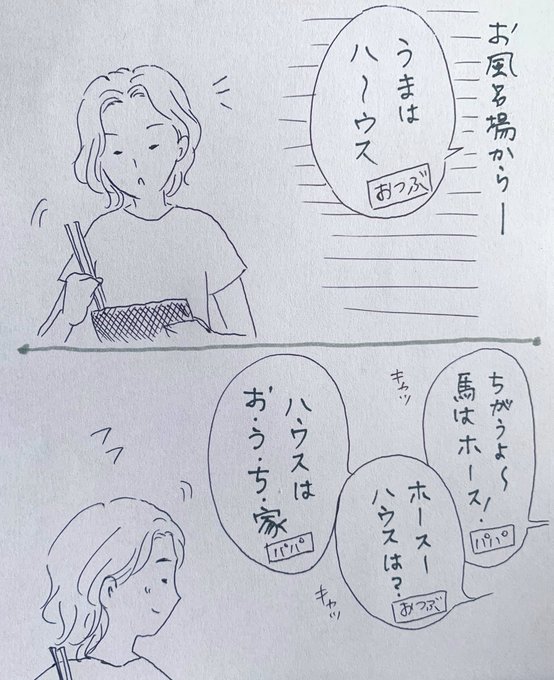 お風呂場からー
うまは
ハ〜ウス
おつぶ
ちがうよ〜
馬はホース!
パパ
キャッ
ホースー
ハウスは?
おつぶ
ハウスは
お・う・ち・家
パパ
キャッ